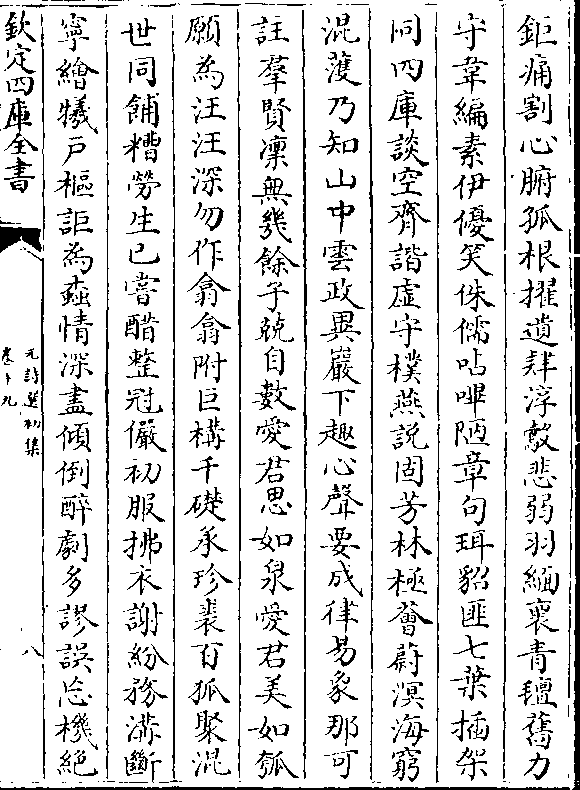 鉅痛割心腑孤根擢遺肄淳歊悲弱羽緬襄青氊舊力
守韋編素伊優笑侏儒呫嗶陋章句珥貂匪七葉插架
同四庫談空齊諧虛守樸燕說固芳林極薈蔚溟海窮
混蒦乃知山中雲政異巖下趣心聲要成律易象那可
註羣賢凛無幾餘子兢自數愛君思如泉愛君美如瓠
願為汪汪深勿作翕翕附巨構千礎承珍裘百狐聚混
世同餔糟勞生已嘗醋整冠儼初服拂衣謝紛務溝斷
寧繪犧戶樞詎為蟲情深盡傾倒醉劇多謬誤忘機絕
欽定四庫全書
元詩選初集
卷十九
八